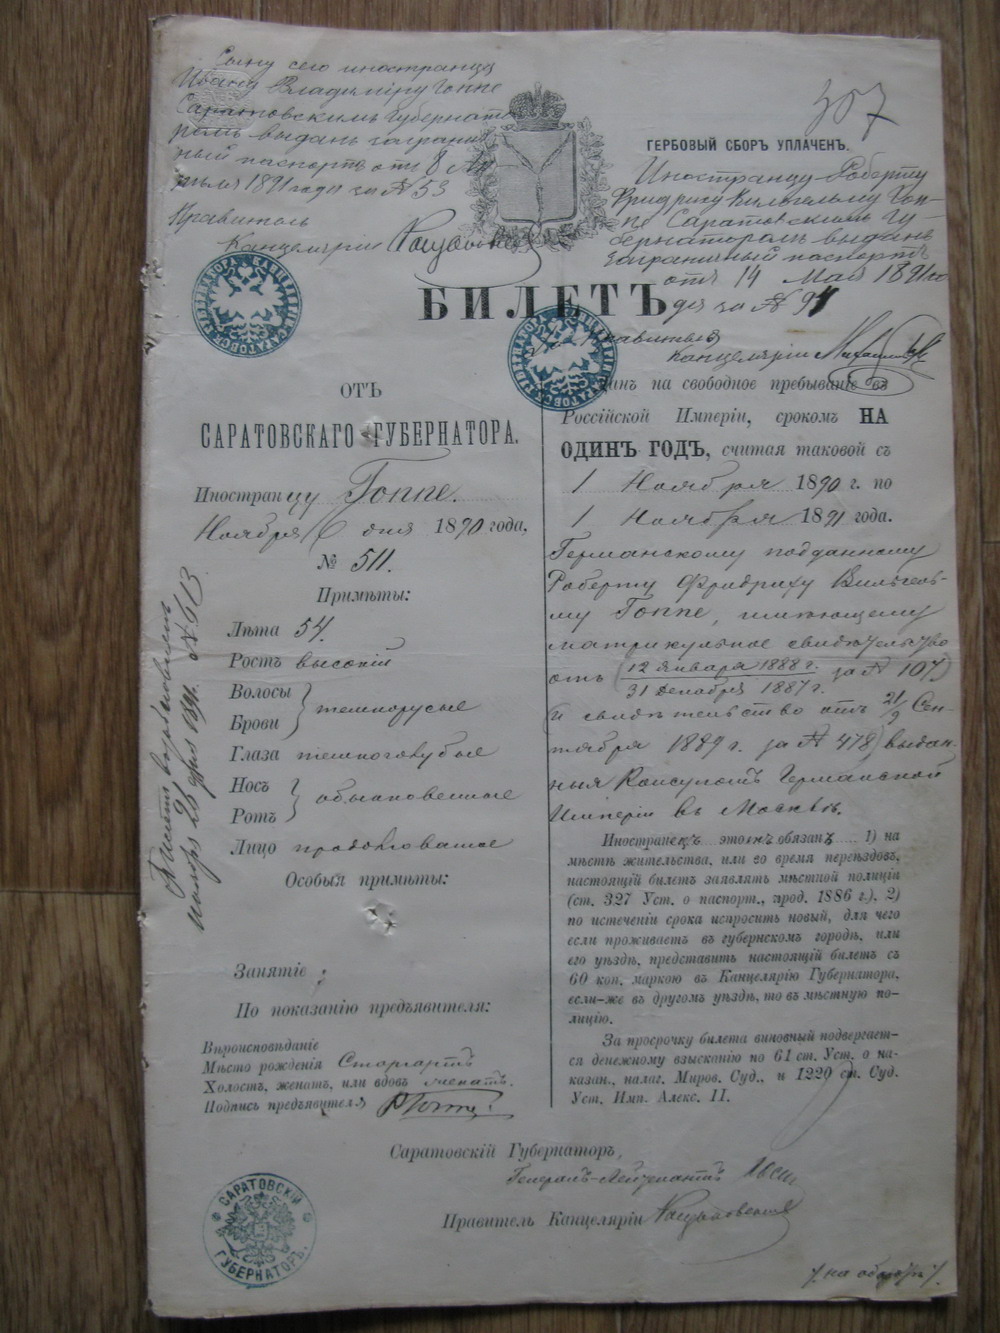 Сыну сего иностранца
Ивану Владиміру Гоппе
Саратовскимъ Губернато
ромъ выданъ загранич
ный паспортъ отъ 8
1891 года за № 53
Правитель
Канцеляріи
307
ГЕРБОВЫЙ СБОРЪ УПЛАЧЕНЪ.
Иностранцу Роберту
Фридриху Вильгельму Гоп-
пе Саратовскимъ Гу-
бернаторомъ выданъ
заграничный паспортъ
отъ 14 Мая 1891 го
да за № 91
Правитель
Канцеляріи
БИЛЕТЪ
ОТЪ
САРАТОВСКАГО ГУБЕРНАТОРА.
Иностранцу Гоппе.
Ноября 6 дня 1890 года.
№ 511.
Примѣты:
Лѣта 54.
Ростъ высокій
Волосы
Брови } темнорусые
Глаза темноголубые
Носъ
Ротъ } обыкновенные
Лицо продолговатое
Особыя примѣты:
Занятіе
По показанію предъявителя:
Вѣроисповѣданіе
Мѣсто рожденія Старгартъ
Холостъ, женатъ, или вдовъ женатъ.
Подпись предъявителя
данъ на свободное пребываніе въ
Россійской Имперіи, срокомъ НА
ОДИНЪ ГОДЪ, считая таковой съ
1 Ноября 1890 г. по
1 Ноября 1891 года.
Германскому подданному
Роберту Фридриху Вильгель-
му Гоппе, имѣющему
матрикульное свидѣтельство
отъ (12 января 1888 г. за № 107)
31 декабря 1887 г.
(и свидѣтельство отъ 21/9 Сен-
тября 1889 г. за № 478) выдан-
ныя Консуломъ Германской
Имперіи въ Москвѣ.
Иностранецъ этотъ обязанъ 1) на
мѣстѣ жительства, или во время переѣздовъ,
настоящій билетъ заявлять мѣстной полиціи
(ст. 327 Уст. о паспорт., прод. 1886 г.), 2)
по истеченіи срока испросить новый, для чего
если проживаетъ въ губернскомъ городѣ, или
его уѣздѣ, представить настоящій билетъ съ
60 коп. маркою въ Канцелярію Губернатора,
если-же въ другомъ уѣздѣ, то въ мѣстную по-
лицію.
За просрочку билета виновный подвергает-
ся денежному взысканію по 61 ст. Уст. о на-
казан., налаг. Миров. Суд., и 1220 ст. Суд.
Уст. Имп. Алекс. II.
Саратовскій Губернаторъ,
Генералъ-Лейтенантъ
Правитель Канцеляріи
САРАТОВСКІЙ ГУБЕРНАТОРЪ.
/. на оборотѣ /.